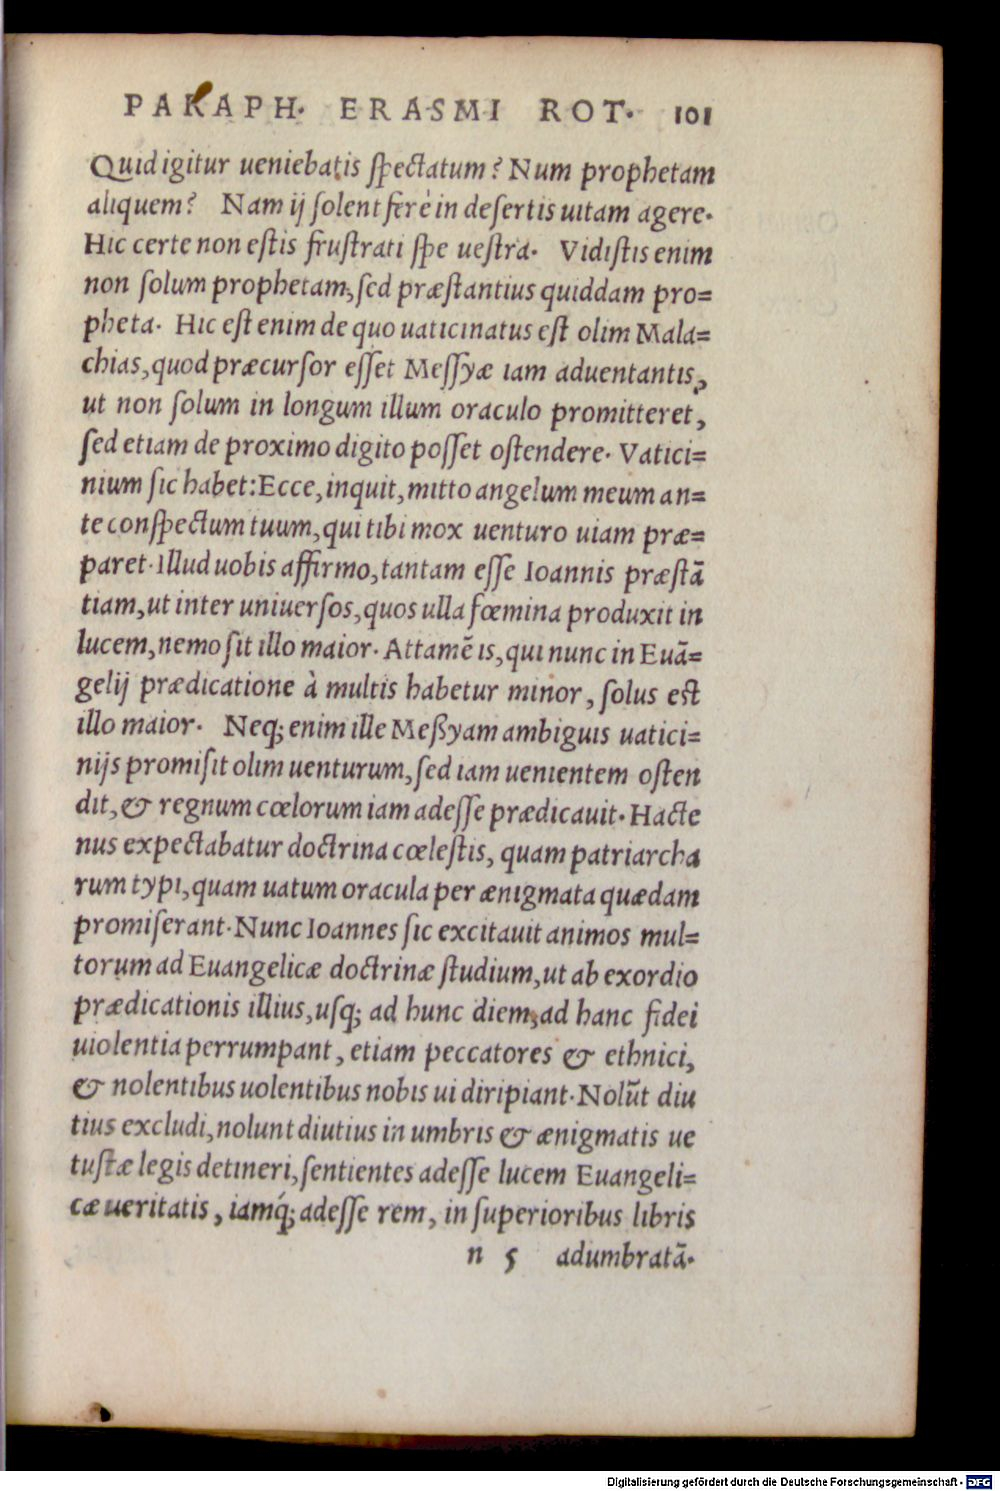 PARAPH. ERASMI ROT. 101
Quid igitur ueniebatis spectatum? Num prophetam
aliquem? Nam ij solent ferè in desertis uitam agere.
Hic certe non estis frustrati spe uestra. Vidistis enim
non solum prophetam, sed præstantius quiddam pro=
pheta. Hic est enim de quo uaticinatus est olim Mala=
chias, quod præcursor esset Messyæ iam aduentantis,
ut non solum in longum illum oraculo promitteret,
sed etiam de proximo digito posset ostendere. Vatici=
nium sic habet: Ecce, inquit, mitto angelum meum an=
te conspectum tuum, qui tibi mox uenturo uiam præ=
paret. Illud uobis affirmo, tantam esse Ioannis præstā
tiam, ut inter uniuersos, quos ulla fœmina produxit in
lucem, nemo sit illo maior. Attamē is, qui nunc in Euā=
gelij prædicatione à multis habetur minor, solus est
illo maior. Neq; enim ille Meßyam ambiguis uatici=
nijs promisit olim uenturum, sed iam uenientem osten
dit, & regnum cœlorum iam adesse prædicauit. Hacte
nus expectabatur doctrina cœlestis, quam patriarcha
rum typi, quam uatum oracula per ænigmata quædam
promiserant. Nunc Ioannes sic excitauit animos mul=
torum ad Euangelicæ doctrinæ studium, ut ab exordio
prædicationis illius, usq; ad hunc diem, ad hanc fidei
uiolentia perrumpant, etiam peccatores & ethnici,
& nolentibus uolentibus nobis ui diripiant. Nolūt diu
tius excludi, nolunt diutius in umbris & ænigmatis ue
tustæ legis detineri, sentientes adesse lucem Euangeli=
cæ ueritatis, iamq́; adesse rem, in superioribus libris
n 5 adumbratā.
Digitalisierung gefördert durch die Deutsche Forschungsgemeinschaft - DFG